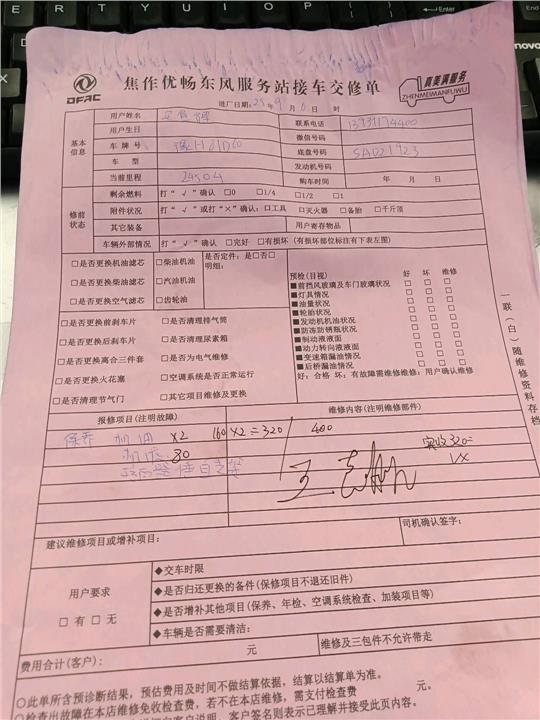 焦作优畅东风服务站接车交修单
DFAC
真美满服务
ZHENMEIMANFUWU
进厂日期：25年9月6日 时
基本信息
用户姓名
联系电话 13939174400
用户生日
微信号码
车牌号
底盘号码 SAD21923
车型
发动机号码
当前里程 24504
购车时间 年 月 日
修前状态
剩余燃料 打“√”确认 □0 □1/4 □1/2 □1
附件状况 打“√”或打“×”确认：□工具 □灭火器 □备胎 □千斤顶
其它装备
用户寄存物品
车辆外部情况 打“√”确认 □完好 □有损坏（有损坏部位标注有下表左图）
□是否更换机油滤芯 □柴油机油 是否定件：是□否□
明细：
□是否更换柴油滤芯 □汽油机油
□是否更换空气滤芯 □齿轮油
□是否更换前刹车片 □是否清理排气筒
□是否更换后刹车片 □是否清理尿素箱
□是否更换离合三件套 □是否为电气维修
□是否更换火花塞 □空调系统是否正常运行
□是否清理节气门 □其它项目维修及更换
预检（目视） 好 坏 维修
■前挡风玻璃及车门玻璃状况 □ □ □
■灯具情况 □ □ □
■油量状况 □ □ □
■轮胎状况 □ □ □
■发动机机油状况 □ □ □
■防冻防锈瓶状况 □ □ □
■制动液液面 □ □ □
■动力转向液液面 □ □ □
■变速箱漏油情况 □ □ □
■后桥漏油情况 □ □ □
好：合格 坏：有故障需维修维修：用户确认维修
一联（白）随维修资料存档
报修项目（注明故障）
维修内容（注明维修部件）
保养 机油 ×2 160×2=320 400
机滤 80
实收320
建议维修项目或增补项目：
司机确认签字：
用户要求
□有 □无
◆交车时限
◆是否归还更换的备件（保修项目不退还旧件）
◆是否增补其他项目（保养、年检、空调系统检查、加装项目等）
◆车辆是否需要清洁：
费用合计（客户）： 元
维修及三包件不允许带走
○此单所含预诊断结果，预估费用及时间不做结算依据，结算以结算单为准。
○检查出故障在本店维修免收检查费，若不在本店维修，需支付检查费 元。
客户签名则表示已理解并接受此页内容。